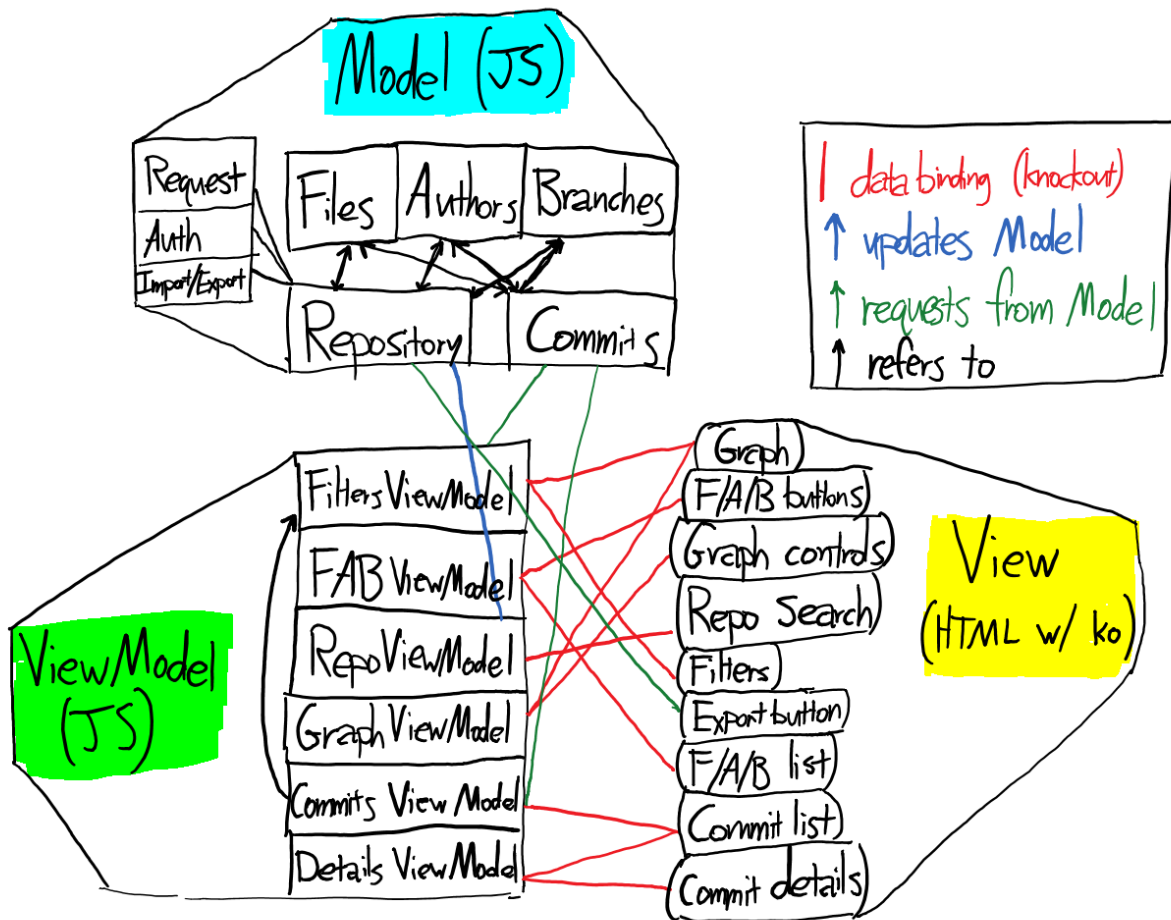 Model (JS)
Request
Auth
Import/Export
Files
Authors
Branches
Repository
Commits
data binding (knockout)
updates Model
requests from Model
refers to
ViewModel
(JS)
Filters ViewModel
FAB ViewModel
Repo ViewModel
Graph ViewModel
Commits View Model
Details ViewModel
Graph
F/A/B buttons
Graph controls
Repo Search
Filters
Export button
F/A/B list
Commit list
Commit details
View
(HTML w/ ko)